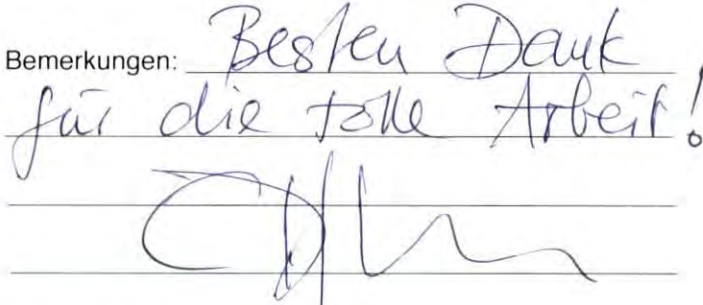 Bemerkungen: Besten Dank
für die tolle Arbeit!